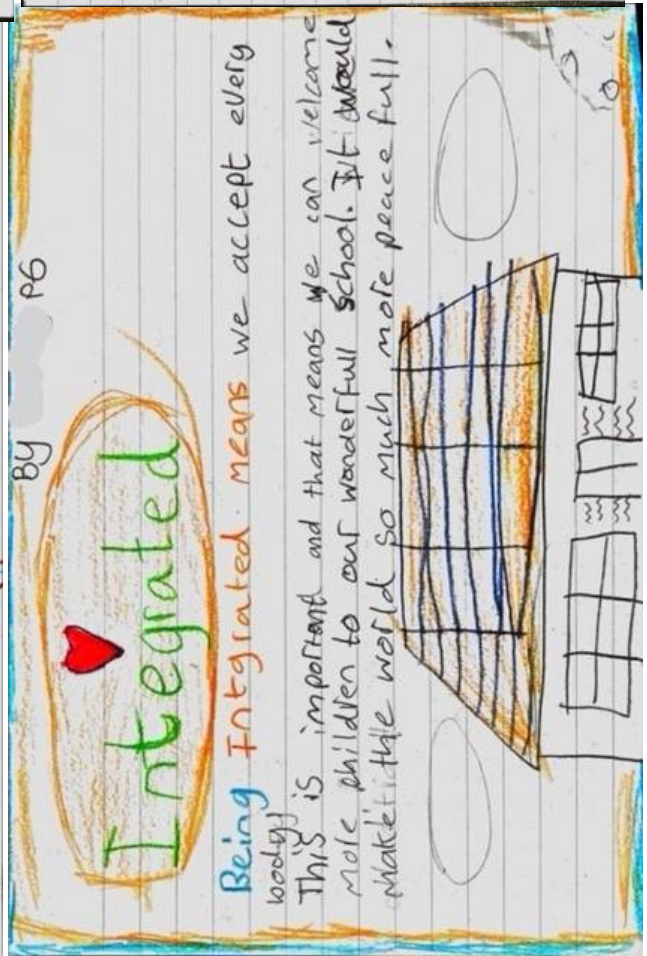 By P6
Integrated
Being Intgrated means we accept every
body!
This is important and that means we can welcome
more children to our wonderfull school. It would
make the world so much more peace full.